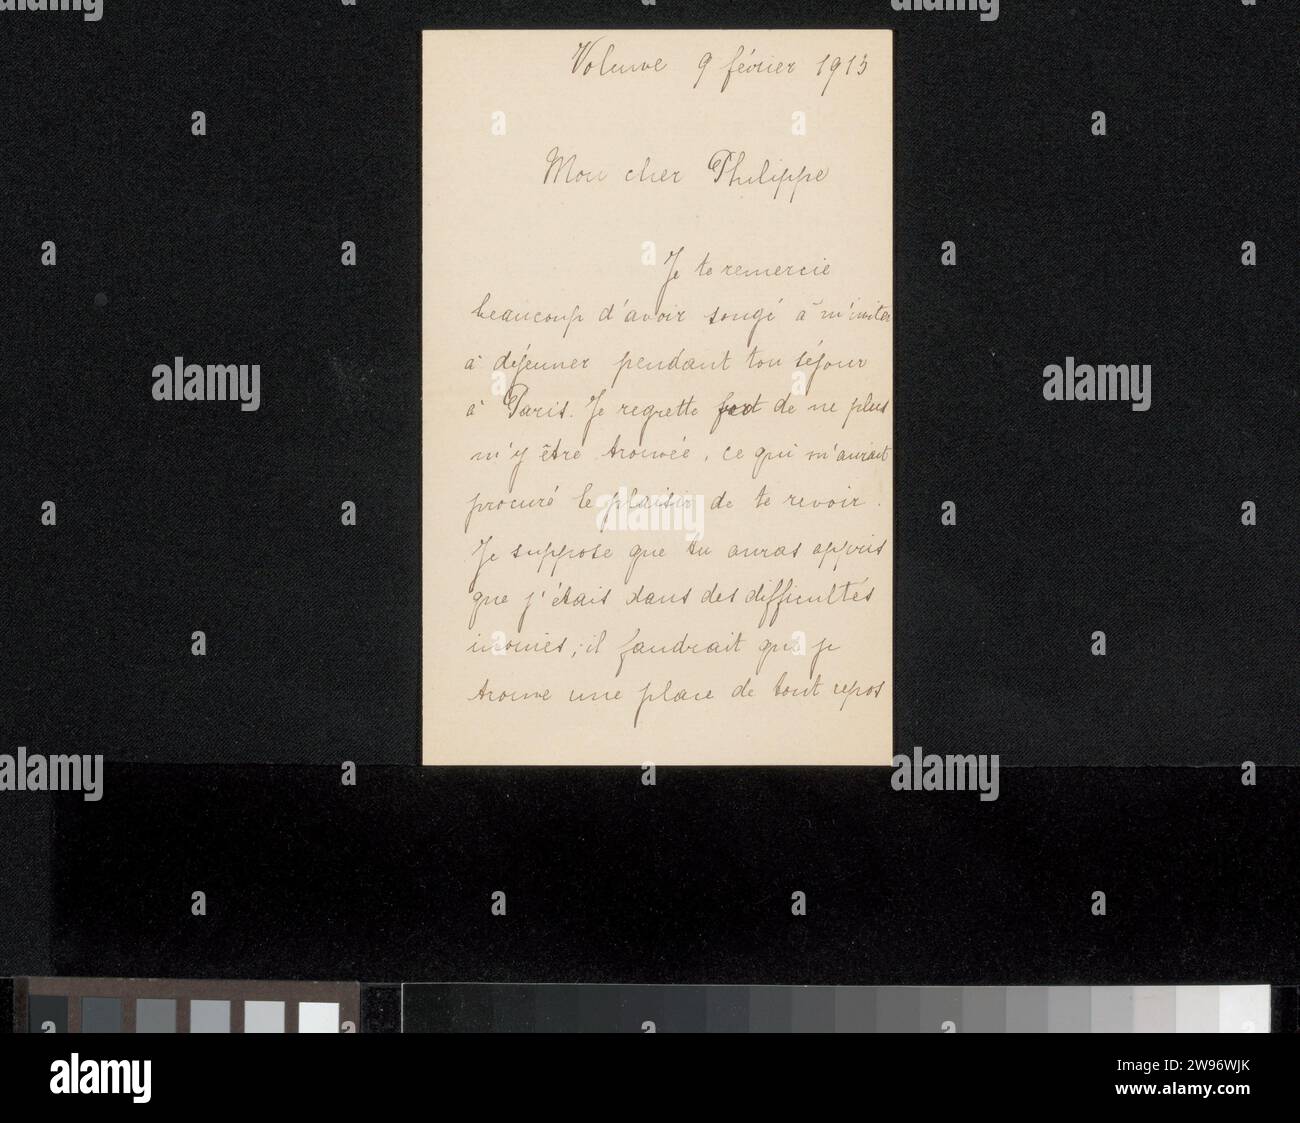 Voluwe 9 février 1913
Mon cher Philippe
Je te remercie
beaucoup d'avoir songé à m'inviter
à déjeuner pendant ton séjour
à Paris. Je regrette fort de ne plus
m'y être trouvée, ce qui m'aurait
procuré le plaisir de te revoir.
Je suppose que tu auras appris
que j'étais dans des difficultés
inouies; il faudrait que je
trouve une place de tout repos
alamy
Image ID: 2W96WJK
www.alamy.com